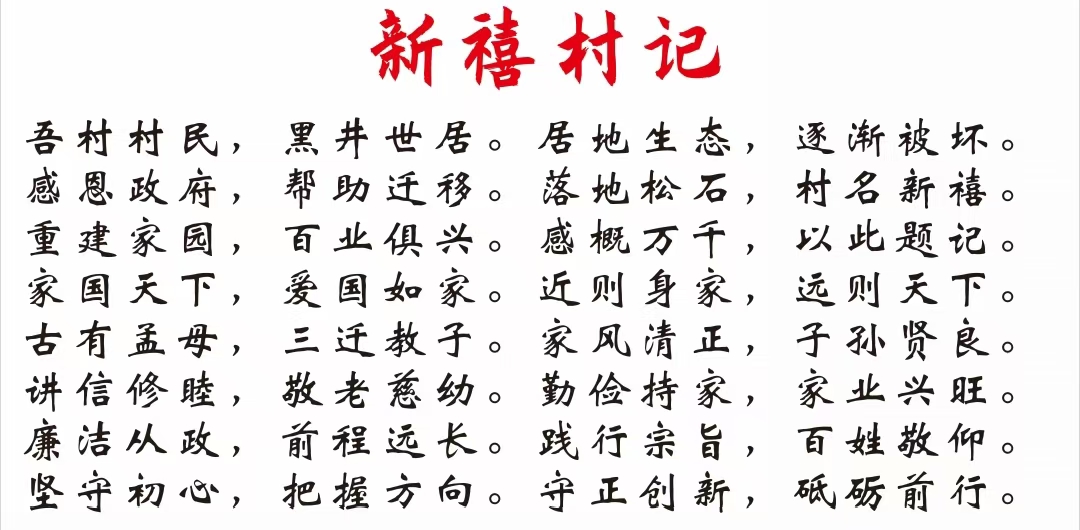 新禧村记
吾村村民，黑井世居。居地生态，逐渐被坏。
感恩政府，帮助迁移。落地松石，村名新禧。
重建家园，百业俱兴。感概万千，以此题记。
家国天下，爱国如家。近则身家，远则天下。
古有孟母，三迁教子。家风清正，子孙贤良。
讲信修睦，敬老慈幼。勤俭持家，家业兴旺。
廉洁从政，前程远长。践行宗旨，百姓敬仰。
坚守初心，把握方向。守正创新，砥砺前行。